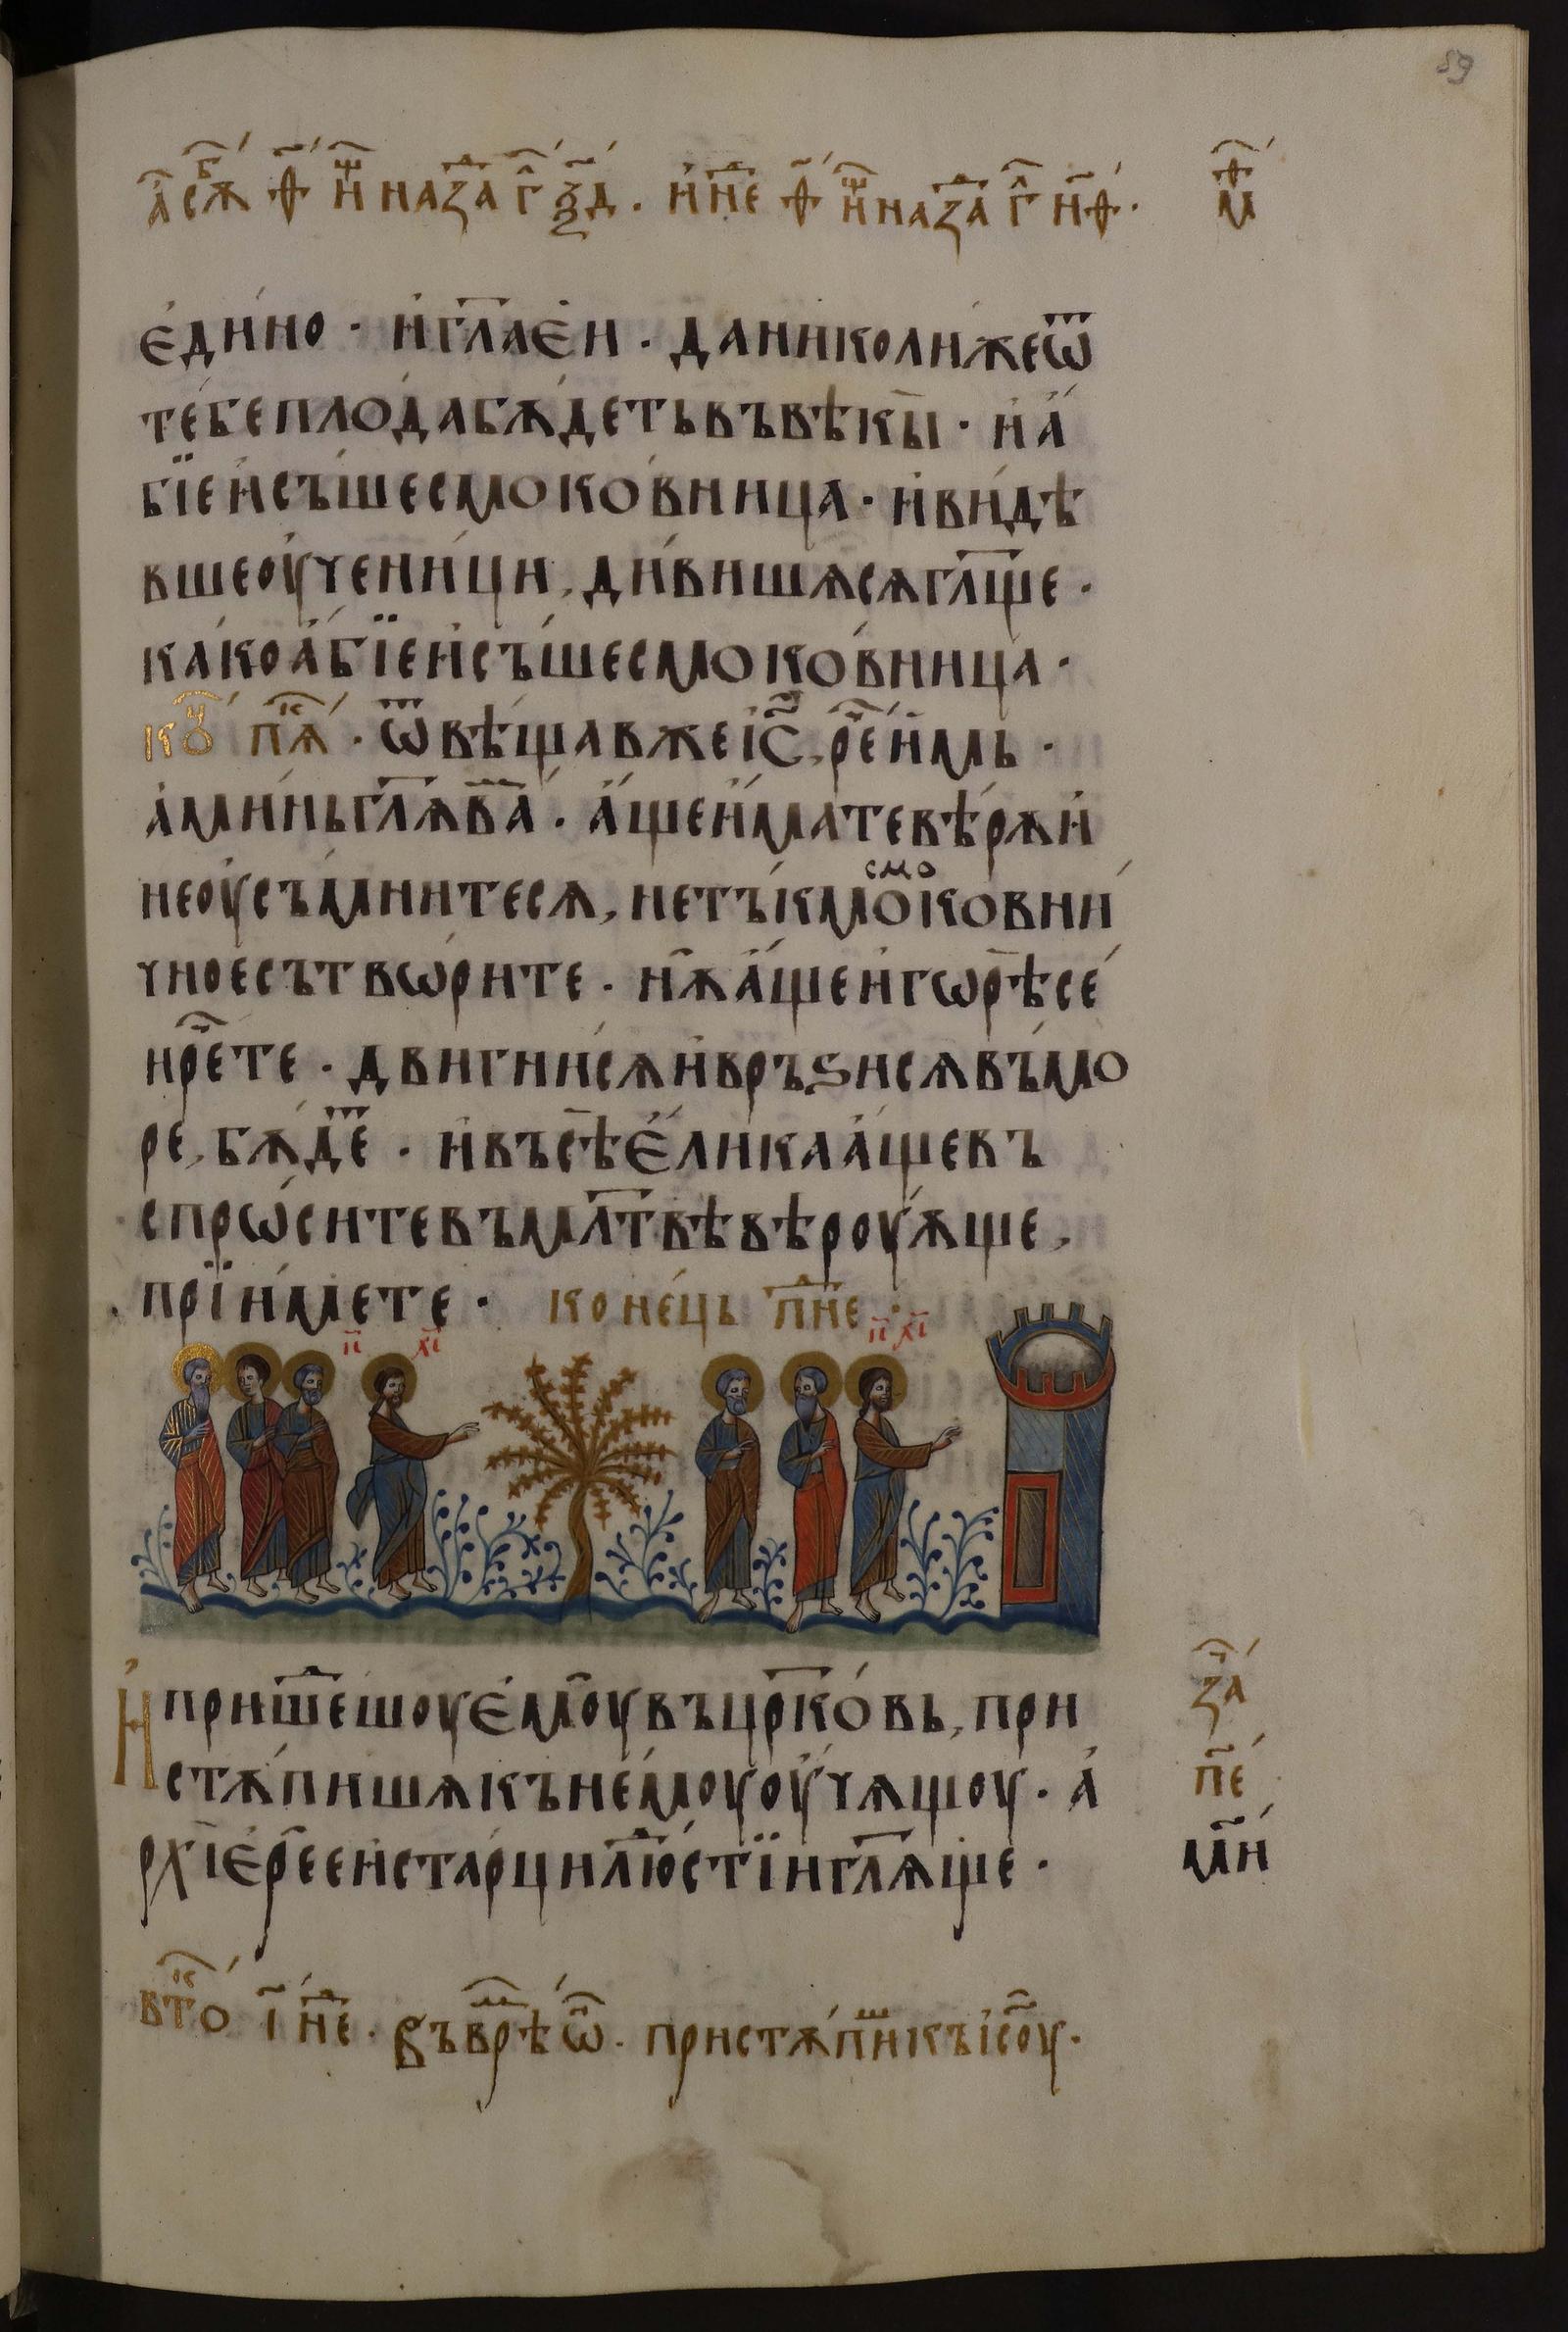 59
а҆ сѫⷠ҇ ф҃ и҆ⷳ҇ на заⷱ҇ г҃ ꙁ҃д. и҆ нⷣе ф҃ и҆ⷳ҇ на заⷱ҇ г҃ и҃ф.
мⷴ҇
є҆ди́но · и҆ гл҃а є҆и · да николиже ѿ
те́бе плода бѫ́деть въ вѣкы · и҆ а҆́
бїе и҆съ́ше смоко́вница · и҆ ви́дѣ
вше ѹ҆чени́ци, ди́вишѧсѧ гл҃ѫще ·
како а҆́бїе и҆съ́ше смоко́вница ·
кѹ҃ пⷭ҇ѧ · ѿвѣ́щав же і҆с҃, рⷱ҇е и҆мь ·
а҆ми́нь гл҃ѧ ва҃ · а҆́ще и҆́мате вѣ́рѫ и҆
не ѹсъмнитесѧ, не тъ́кмо смоковни́
чное сътвѡ́рите · нѫ҃ а҆́ще и҆ гѡрѣ се́
и рⷱ҇ете · двигни́сѧ и҆ връѕисѧ въ́ мо
ре, бѫ́деⷮ · и҆ въсѣ є҆́лика а҆́ще въ
спрѡ́сите въ млⷮ҇вѣ вѣроу́ѫще,
прїи́мете · коне́ць пнⷣе ·
п҃ хі҃ п҃ хі҃
И҆ пришⷣешоу є҆моу въ црⷦ҇о́вь, при
стѫ́пишѧ къ не́моу ѹ҆чѧщоу · а҆
рхїє҆ре́е и҆ ста́рци люⷣ́стїи гл҃ѫще ·
за҃
п҃е
м҃и
втⷪ҇ о і҃ нⷣе. въ врⷨѣ ѡ҆⃝. пристѫ́пиⷲ къ і҆сⷭ҇оу.